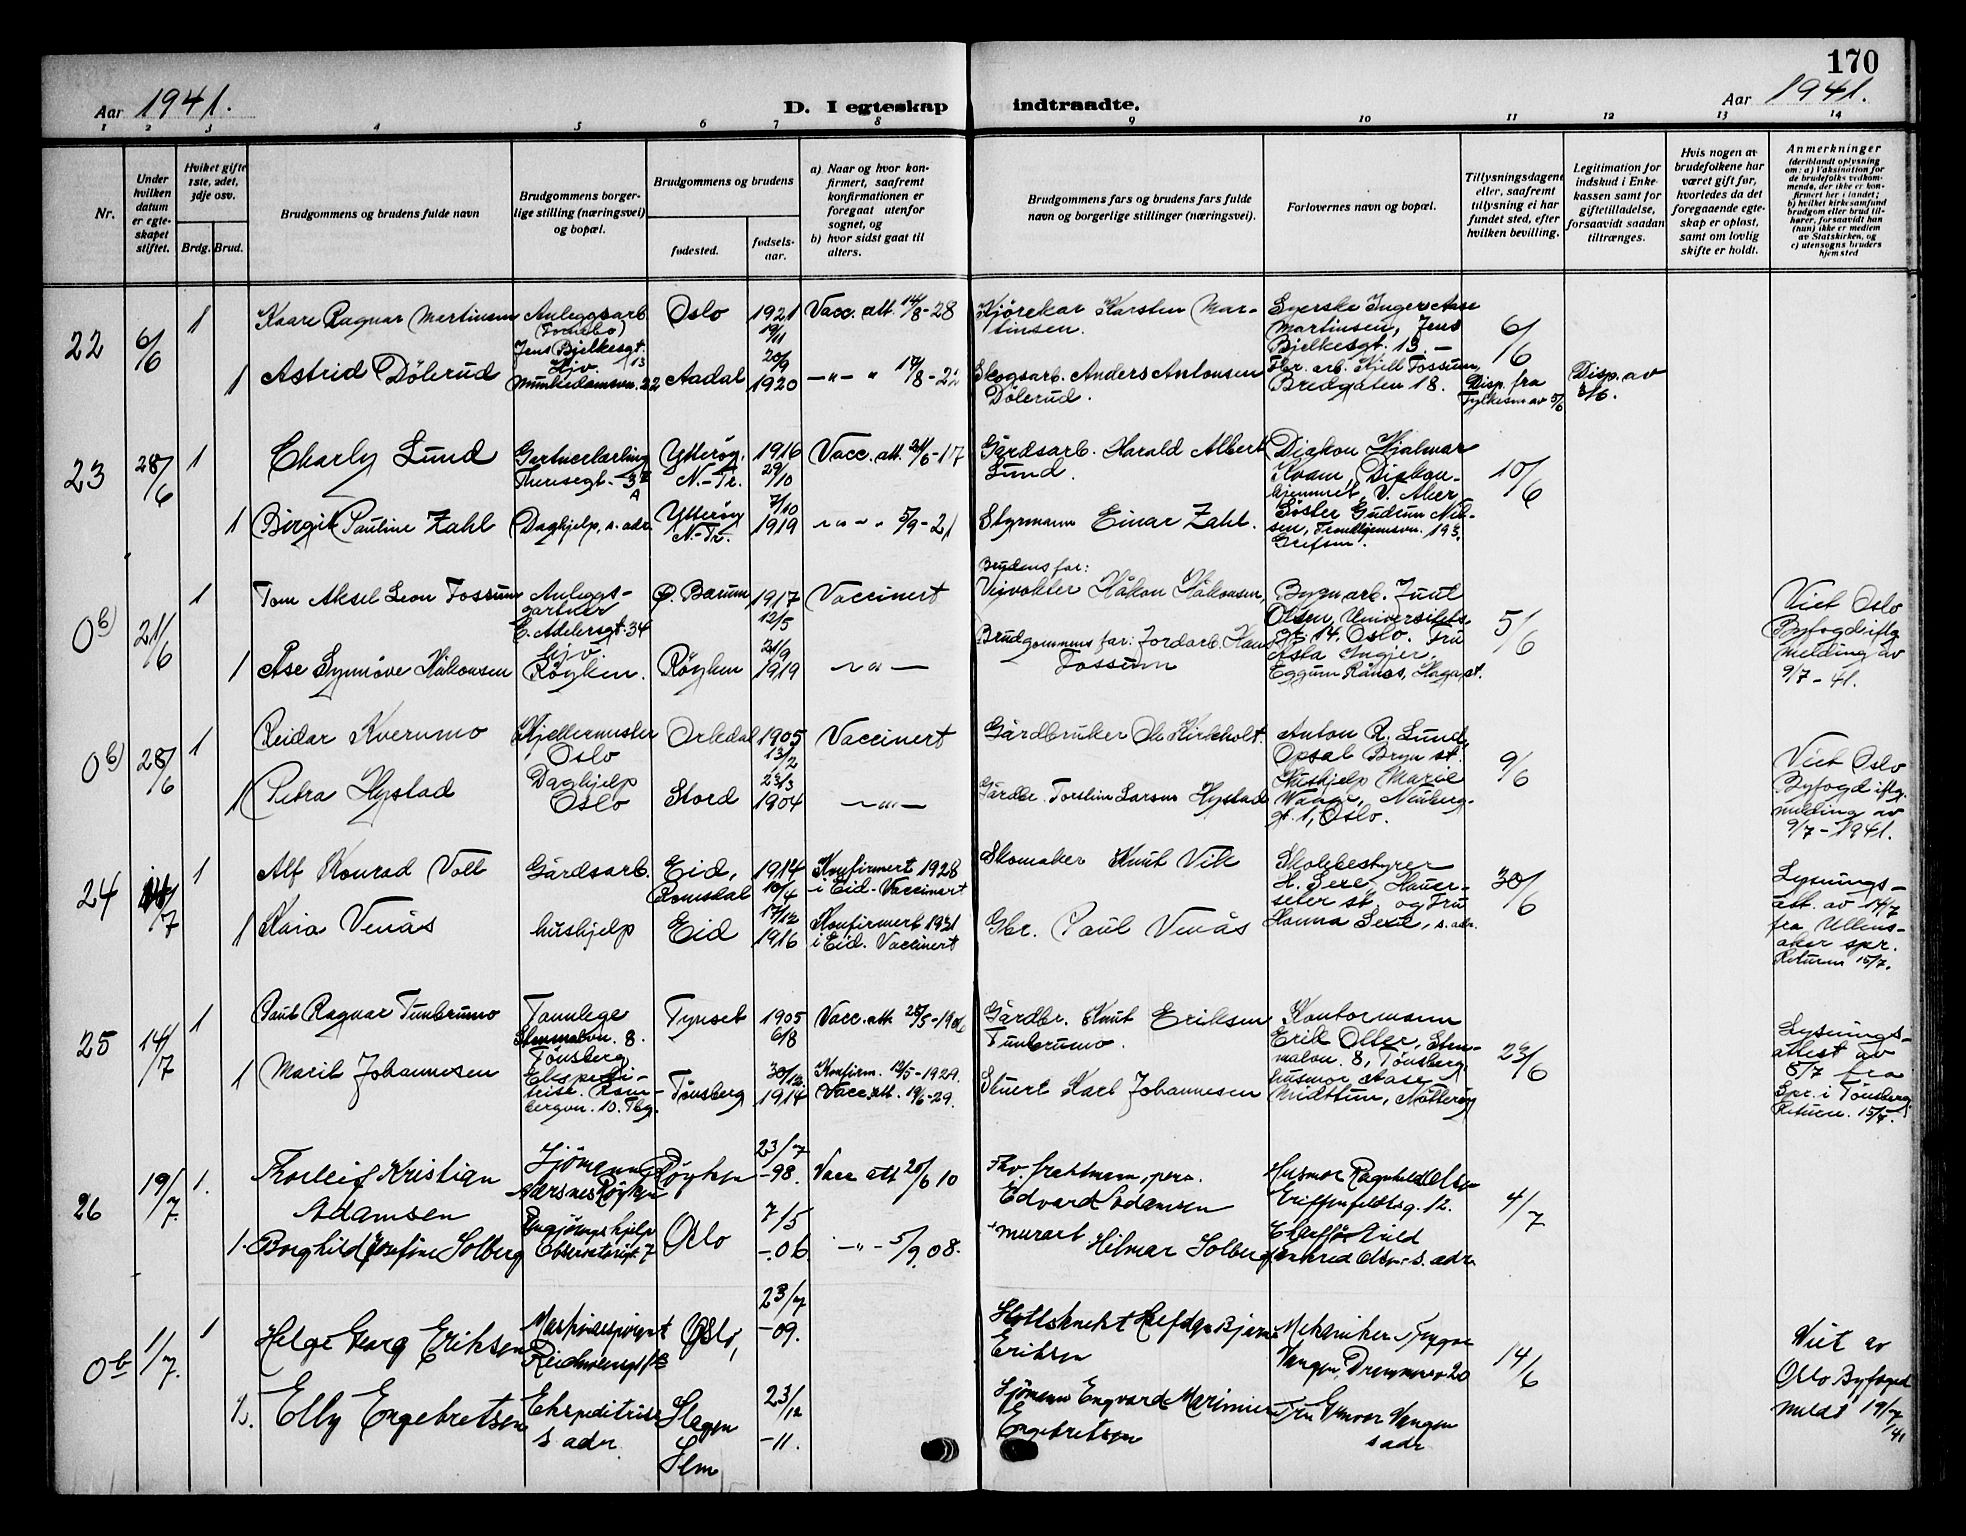 170
Aar 1941.
D. I egteskap indtraadte.
Aar 1941.
1 2 3 4 5 6 7 8 9 10 11 12 13 14
Nr.
Under hvilken datum er egteskapet stiftet.
Hvilket gifte 1ste, 2det, 3dje osv.
Brdg. Brud.
Brudgommens og brudens fulde navn
Brudgommens borgerlige stilling (næringsvei) og bopæl.
Brudgommens og brudens
fødested.
fødselsaar.
a) Naar og hvor konfirmert, saafremt konfirmationen er foregaat utenfor sognet, og
b) hvor sidst gaat til alters.
Brudgommens fars og brudens fars fulde navn og borgerlige stillinger (næringsvei).
Forlovernes navn og bopæl.
Tillysningsdagene eller, saafremt tillysning ei har fundet sted, efter hvilken bevilling.
Legitimation for indskud i Enkekassen samt for giftetilladelse, forsaavidt saadan tiltrænges.
Hvis nogen av brudefolkene har været gift før, hvorledes da det foregaaende egteskap er opløst, samt om lovlig skifte er holdt.
Anmerkninger
(deriblandt oplysning om: a) Vaksination for de brudefolks vedkommende, der ikke er konfirmert her i landet; b) hvilket kirkesamfund brudgom eller brud tilhører, forsaavidt han (hun) ikke er medlem av Statskirken, og c) utensogns bruders hjemsted
22 6/6 1 Kaare Ragnar Martinsen
Anleggsarb.
(Fornebo)
Jens Bjelkesgt. 13
Oslo 1921 19/11
Vacc. att. 14/8-28
Kjørekar Karsten Martinsen.
Syerske Inger Aase
Martinsen, Jens
Bjelkesgt. 13. —
6/6
1 Astrid Dølerud
Hjv.
Munkedamsvn. 22
Aadal 20/9 1920
—"— " 17/8-22
Skogsarb. Anders Antonsen
Dølerud.
Fbr. arb. Kjell Fossum,
Bredgaten 18.
Disp. fra
Fylkesm av 5/6
Disp. av
5/6.
23 28/6 1 Charly Lund
Gartnerlærling
Theresegt. 3
A
Ytterøy, N.-Tr.
1916 29/10
Vacc. att. 21/6-17
Gårdsarb. Harald Albert
Lund.
Diakon Hjalmar
Kvam, Diakonhjemmet, V. Aker
10/6
1 Birgit Pauline Zahl
Daghjelp, s. adr.
Ytterøy N.-Tr.
7/10 1919
5/9-21
Styrmann Einar Zahl.
Søster Gudrun Nilsen, Trondhjemsvn. 193.
Grefsen.
0 b) 21/6 1 Tom Aksel Leon Fossum
Anleggsgartner
C. Adelersgt. 34
Ø. Bærum 1917 12/5
Vaccinert
Brudens far:
Visvokter Håkon Håkonsen,
Bygn. arb. Juul
Olsen, Universitetsgt. 14, Oslo. Fru
5/6
Viet Oslo
Byfogd iflg
melding av
9/7-41.
1 Åse Synnøve Håkonsen
Hjv.
Røyken.
Røyken 21/9 1919
—"—
Brudgommens far: Jordarb. Hans
Fossum
Asta Ingjer,
Eggum Rånås, Hagast.
0 b) 28/6 1 Reidar Kverumo
Kjellermester
Oslo
Orkdal 1905 13/2
Vaccinert
Gårdbruker Ole Kirkholt.
Anton R. Lund,
Opsal Bryn st.
9/6
Viet Oslo
Byfogd iflg.
melding av
9/7-1941.
1 Petra Hystad
Daghjelp
Oslo
Stord 23/3 1904
—"—
Gårdbr. Torstein Larsen Hystad
Hushjelp Marie
Waage, Neuberggt. 1, Oslo.
24 /7 1 Alf Konrad Voll
Gårdsarb.
Eid, Romsdal
1914 10/4
Konfirmert 1928
i Eid. Vaccinert
Skomaker Knut Vik
Skolebestyrer
H. Sexe, Hauerseter st. og Fru
30/6
Lysningsatt. av 14/7
fra Ullensaker spr.
Return 15/7.
1 Kaia Venås
hushjelp
Eid 17/12 1916
Konfirmert 1931
i Eid. Vaccinert
Gbr. Paul Venås
Hanna Sexe, s. adr.
25 14/7 1 Paul Ragnar Tunbrumo
Tannlege
Stenmalvn. 8.
Tønsberg
Tynset 1905 6/8
Vacc. att. 25/5-1906
Gårdbr. Knut Eriksen
Tunbrumo.
Kontormann
Erik Olter, Stenmalvn. 8, Tønsberg,
23/6
Lysningsattest av
8/7 fra
Spr. i Tønsberg.
Return. 15/7.
1 Marit Johannesen
Ekspeditrise. Rambergvn. 10. Tbg.
Tønsberg 30/12 1914
Konfirm. 12/5-1929.
Vacc. att. 19/6-29.
Stuert Karl Johannesen
husmor Aase
Midttun, Nøtterøy
26 19/7. 1. Thorleif Kristian
Adamsen
Sjømann
Nærsnes Røyken
Røyken 23/7 -98.
Vacc att 20/6 10
Fhv. fraktmann, pens.
Edvard Adamsen
Husmor Ragnhild Olsen
Griffenfeldtsg. 12.
4/7
1. Borghild Josefine Solberg
Rengjøringshjelp
Observatoriegt. 7
Oslo 7/5 -.06.
—"— 5/9 08.
murarb Hilmar Solberg
s. adr.
0 b 1/7. 1 Helge Georg Eriksen
Oslo, 23/7 -09.
Slottsknekt
Eriksen
Mekaniker Trygve
Vangen, Drammensv 20
14/6
Viet av
Oslo Byfogd
meldt 19/7
/41
2. Elly Engebretsen
Ekspeditrise
s adr.
Slagen
Sem
23/12 -11.
Sjømann Engvard Marinius
Engebretsen
Fru Gunvor Vangen
s adr